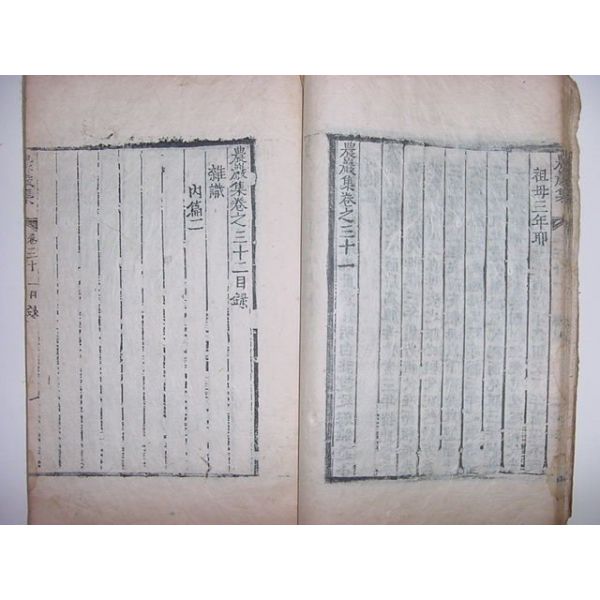 祖母三年耶
農巖集卷之三十一
農巖集卷之三十二目錄
雜識
內篇二
農巖集
卷三十二目錄